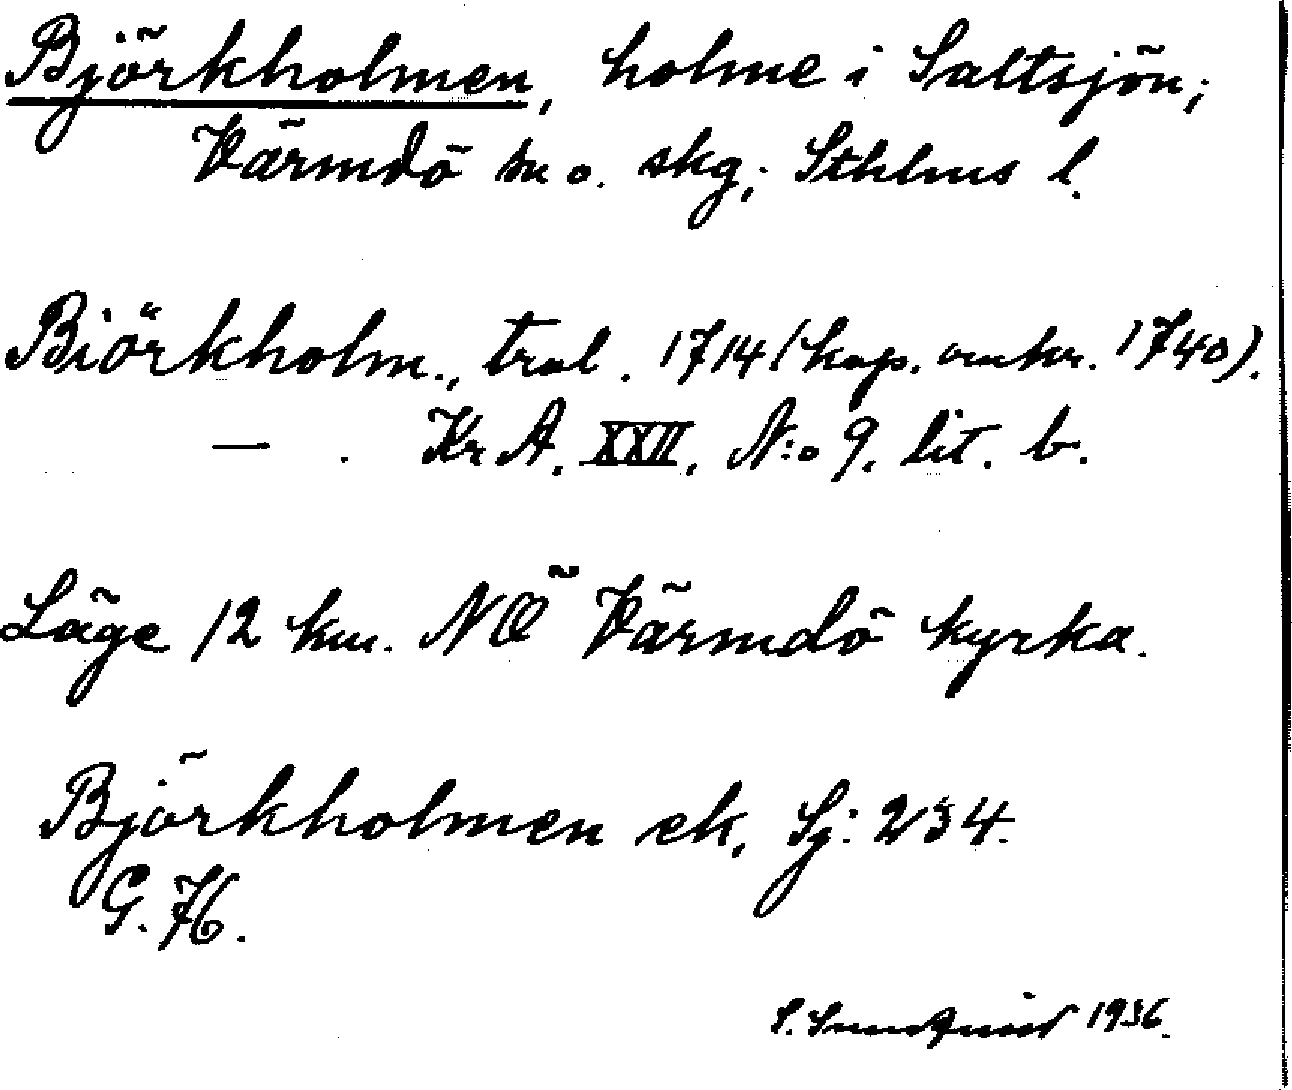 Björkholmen, holme i Saltsjön;
Värmdö sn o. skg; Sthlms l.
Biörkholm., trol. 1714 (kop. omkr. 1740).
— . Kr A. XXII. N:o 9. lit. b.
Läge 12 km. NO Värmdö kyrka.
Björkholmen ek, Sj: 234.
G. H.
S. 1936.